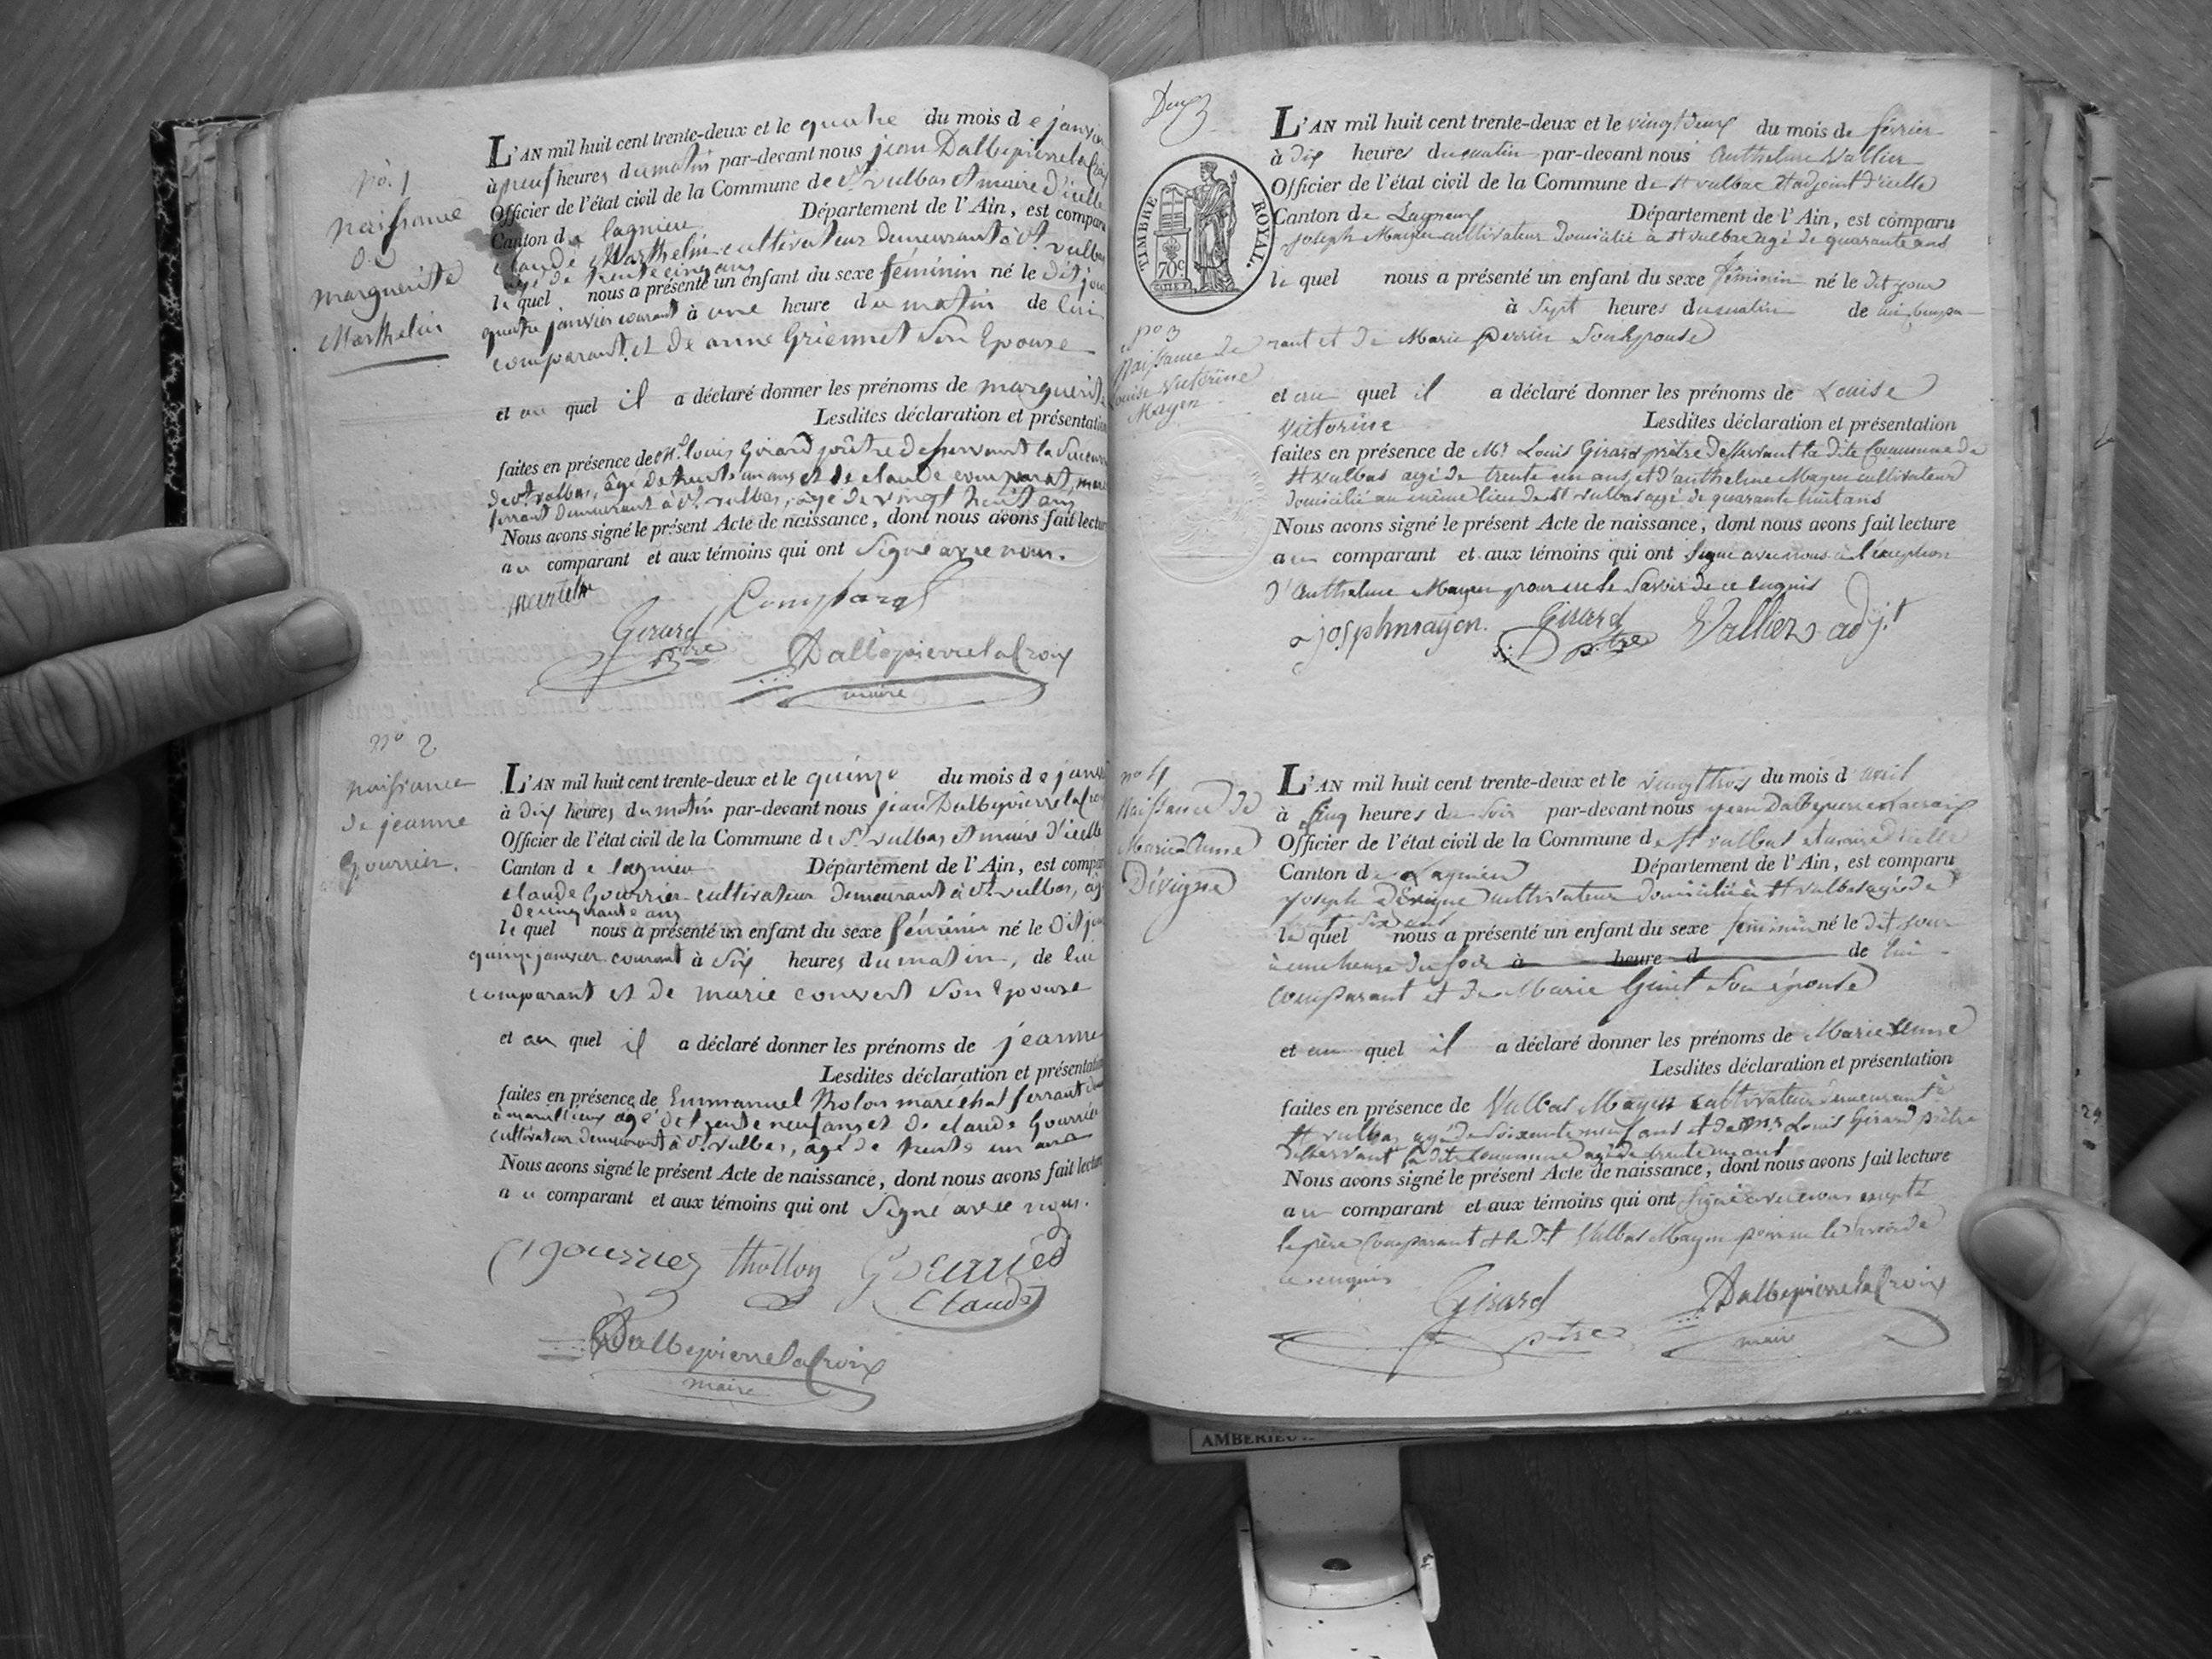 no. 1
naissance
de
marguerite
Marthelin
L'AN mil huit cent trente-deux et le quatre du mois de janvier
à neuf heures du matin par-devant nous jean Dalbepierrelacroix
Officier de l'état civil de la Commune de St. vulbas et maire d'icelle
Canton de lagnieu Département de l'Ain, est comparu
claude Marthelin cultivateur demeurant à St. vulbas
âgé de trente cinq ans
le quel nous a présenté un enfant du sexe féminin né le dit jour
quatre janvier courant à une heure du matin de lui
comparant et de anne Griennet son Epouse
et au quel il a déclaré donner les prénoms de marguerite
Lesdites déclaration et présentation
faites en présence de Mr. louis Girard prêtre desservant la
de St. vulbas, âgé de trente un ans et de claude comparat,
ferrant demeurant à St. vulbas, âgé de vingt huit ans
Nous avons signé le présent Acte de naissance, dont nous avons fait lecture
au comparant et aux témoins qui ont Signé avec nous.
Comparat
Girard
ptre
Dalbepierrelacroix
maire
no 2
naissance
de jeanne
Gourrier.
L'AN mil huit cent trente-deux et le quinze du mois de janvier
à dix heures du matin par-devant nous jean Dalbepierrelacroix
Officier de l'état civil de la Commune de St. vulbas et maire d'icelle
Canton de lagnieu Département de l'Ain, est comparu
claude Gourrier cultivateur demeurant à St. vulbas, âgé
de cinquante ans
le quel nous a présenté un enfant du sexe féminin né le dit jour
quinze janvier courant à six heures du matin, de lui
comparant et de marie convert son Epouse
et au quel il a déclaré donner les prénoms de jeanne
Lesdites déclaration et présentation
faites en présence de Emmanuel tholon maréchal ferrant
âgé de trente neuf ans et de claude Gourrier
cultivateur demeurant à St. vulbas, âgé de trente un ans
Nous avons signé le présent Acte de naissance, dont nous avons fait lecture
au comparant et aux témoins qui ont Signé avec nous.
Gourrier thollon Gourrier
Claude
Dalbepierrelacroix
maire
Deux
TIMBRE ROYAL.
70c
no 3
Naissance de
Louise Victorine
Mayen
L'AN mil huit cent trente-deux et le vingt deux du mois de février
à dix heures du matin par-devant nous Anthelme Vallier
Officier de l'état civil de la Commune de St vulbas et adjoint d'icelle
Canton de Lagnieu Département de l'Ain, est comparu
Joseph Mayen cultivateur domicilié à St vulbas agé de quarante ans
le quel nous a présenté un enfant du sexe féminin né le dit jour
à sept heures du matin de lui compa
rant et de Marie perrier son épouse
et au quel il a déclaré donner les prénoms de Louise
Victorine Lesdites déclaration et présentation
faites en présence de Mr Louis Girard prêtre desservant la dite Commune de
St vulbas agé de trente un ans, et d'anthelme Mayen cultivateur
domicilié au même lieu de St vulbas agé de quarante huit ans
Nous avons signé le présent Acte de naissance, dont nous avons fait lecture
au comparant et aux témoins qui ont signé avec nous à l'exception
d'Anthelme Mayen pour ne le savoir de ce enquis
josph mayen. Girard ptre Vallier adj.t
no 4
Naissance de
Marie Anne
Dévigne
L'AN mil huit cent trente-deux et le vingt trois du mois d'avril
à cinq heures du soir par-devant nous jean Dalbepierrelacroix
Officier de l'état civil de la Commune de St vulbas et maire d'icelle
Canton de Lagnieu Département de l'Ain, est comparu
Joseph Dévigne cultivateur domicilié à St vulbas agé de
trente six ans
le quel nous a présenté un enfant du sexe féminin né le dit jour
à une heure du soir à heure d de lui
comparant et de Marie Guint son épouse
et au quel il a déclaré donner les prénoms de Marie Anne
Lesdites déclaration et présentation
faites en présence de Vulbas Mayen cultivateur demeurant à
St vulbas agé de soixante neuf ans et de Mr Louis Girard prêtre
desservant la dite commune agé de trente un ans
Nous avons signé le présent Acte de naissance, dont nous avons fait lecture
au comparant et aux témoins qui ont signé avec nous excepté
le père comparant et le dit Vulbas Mayen pour ne le savoir de
ce enquis
Girard
ptre
Dalbepierrelacroix
maire
29